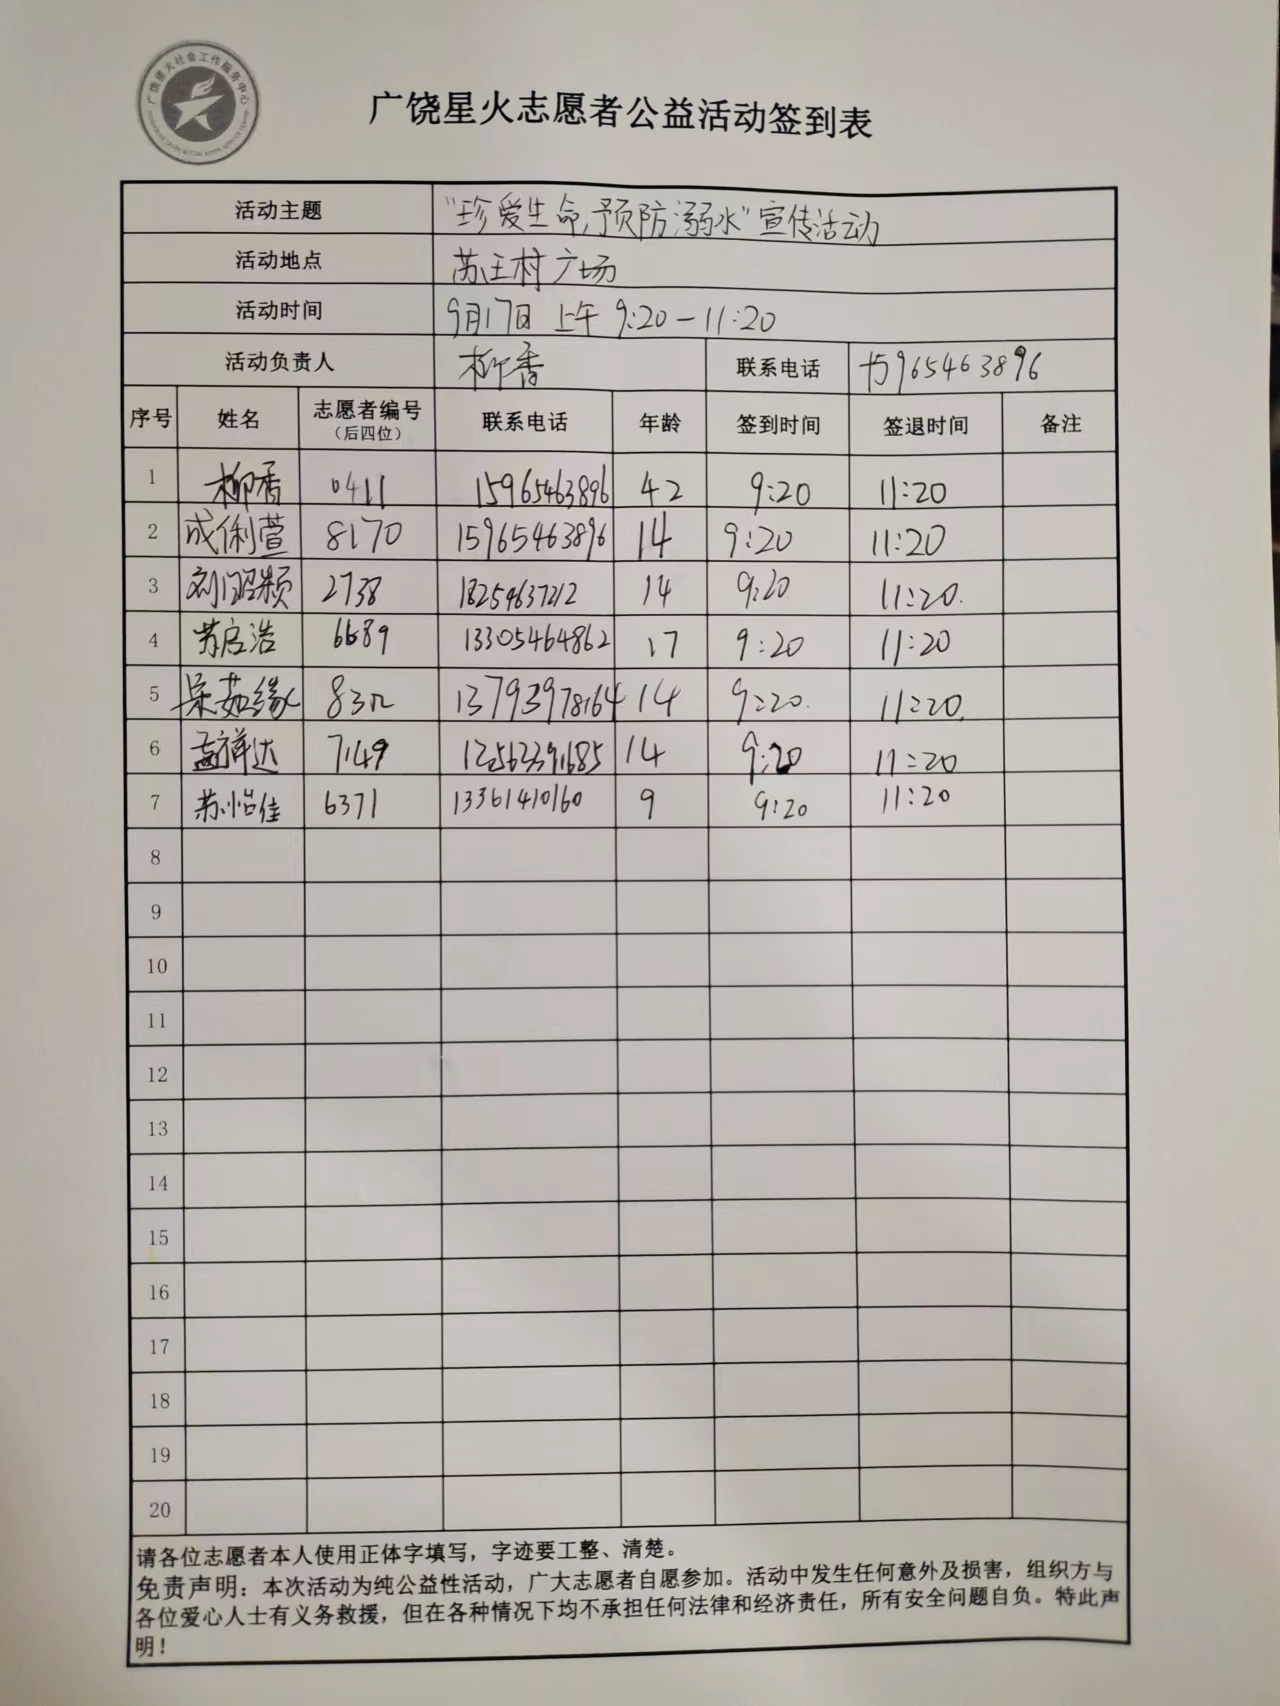 广饶星火社会工作服务中心
广饶星火志愿者公益活动签到表
活动主题 “珍爱生命,预防溺水”宣传活动
活动地点 苏王村广场
活动时间 9月17日 上午 9:20-11:20
活动负责人 柳香 联系电话 15965463896
序号 姓名 志愿者编号(后四位) 联系电话 年龄 签到时间 签退时间 备注
1 柳香 0411 15965463896 42 9:20 11:20
2 成俐萱 8170 15965463896 14 9:20 11:20
3 2738 18259637212 14 9:20. 11:20.
4 苏启浩 6689 13305464862 17 9:20 11:20
5 茹缘 13793978164 14 9:20. 11:20.
6 孟祥达 7149 14 9:20 11:20
7 苏怡佳 6371 13361410160 9 9:20 11:20
8
9
10
11
12
13
14
15
16
17
18
19
20
请各位志愿者本人使用正体字填写，字迹要工整、清楚。
免责声明：本次活动为纯公益性活动，广大志愿者自愿参加。活动中发生任何意外及损害，组织方与
各位爱心人士有义务救援，但在各种情况下均不承担任何法律和经济责任，所有安全问题自负。特此声
明！